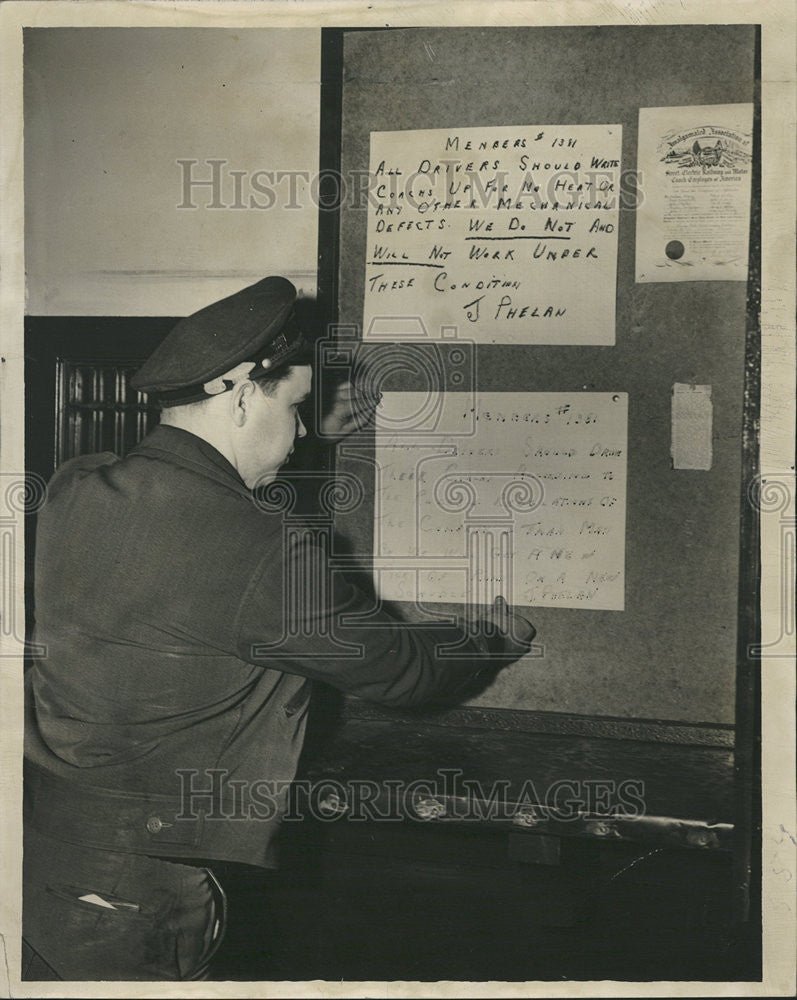 MENBERS # 1381
ALL DRIVERS SHOULD WRITE
COACHS UP FOR NO HEAT OR
ANY OTHER MECHANICAL
DEFECTS. WE DO NOT AND
WILL NOT WORK UNDER
THESE CONDITION
J PHELAN
Amalgamated Association
of
Street, Electric Railway and Motor
Coach Employes of
America
MENBERS # 1381
DRIVERS SHOULD DRIVE
THEIR COACHS ACCORDING TO
THE REGULATIONS OF
THE COMPANY THAN MAY
BE WE WILL GET A NEW
OF RUN OR A NEW
SCHEDULE J. PHELAN
HISTORIC IMAGES
HISTORIC IMAGES